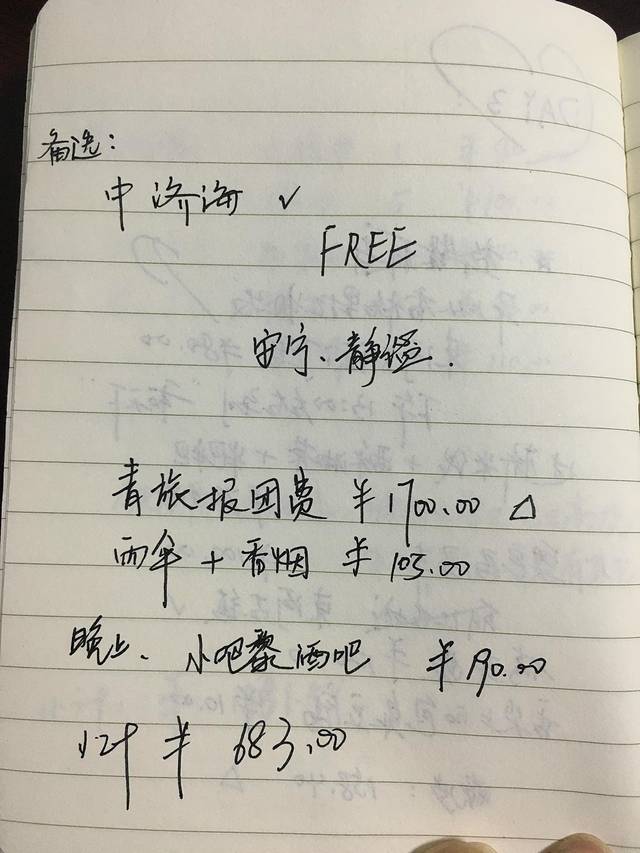 备选：
中济海 ✓
FREE
安宁、静谧.
青旅报团费 ¥1700.00 △
雨伞 + 香烟 ¥ 103.00
晚上、小吧 酒吧 ¥190.00
小计 ¥ 683.00